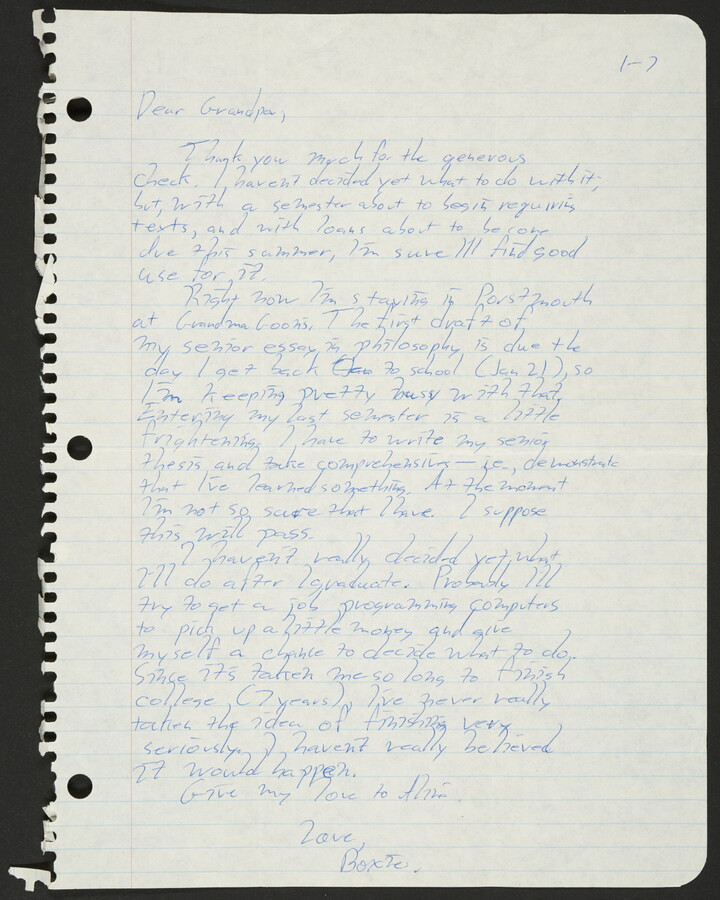 1-7
Dear Grandpa,
Thank you much for the generous
check. I haven't decided yet what to do with it;
but, with a semester about to begin requiring
texts, and with loans about to become
due this summer, I'm sure I'll find good
use for it.
Right now I'm staying in Portsmouth
at Grandma Goon's. The first draft of
my senior essay in philosophy is due the
day I get back to school (Jan 21), so
I'm keeping pretty busy with that.
Entering my last semester is a little
frightening. I have to write my senior
thesis, and take comprehensives — ie, demonstrate
that I've learned something. At the moment
I'm not so sure that I have. I suppose
this will pass.
I haven't really decided yet what
I'll do after I graduate. Probably I'll
try to get a job programming computers
to pick up a little money and give
myself a chance to decide what to do.
Since it's taken me so long to finish
college (7 years), I've never really
taken the idea of finishing very
seriously. I haven't really believed
it would happen.
Give my love to
Love,